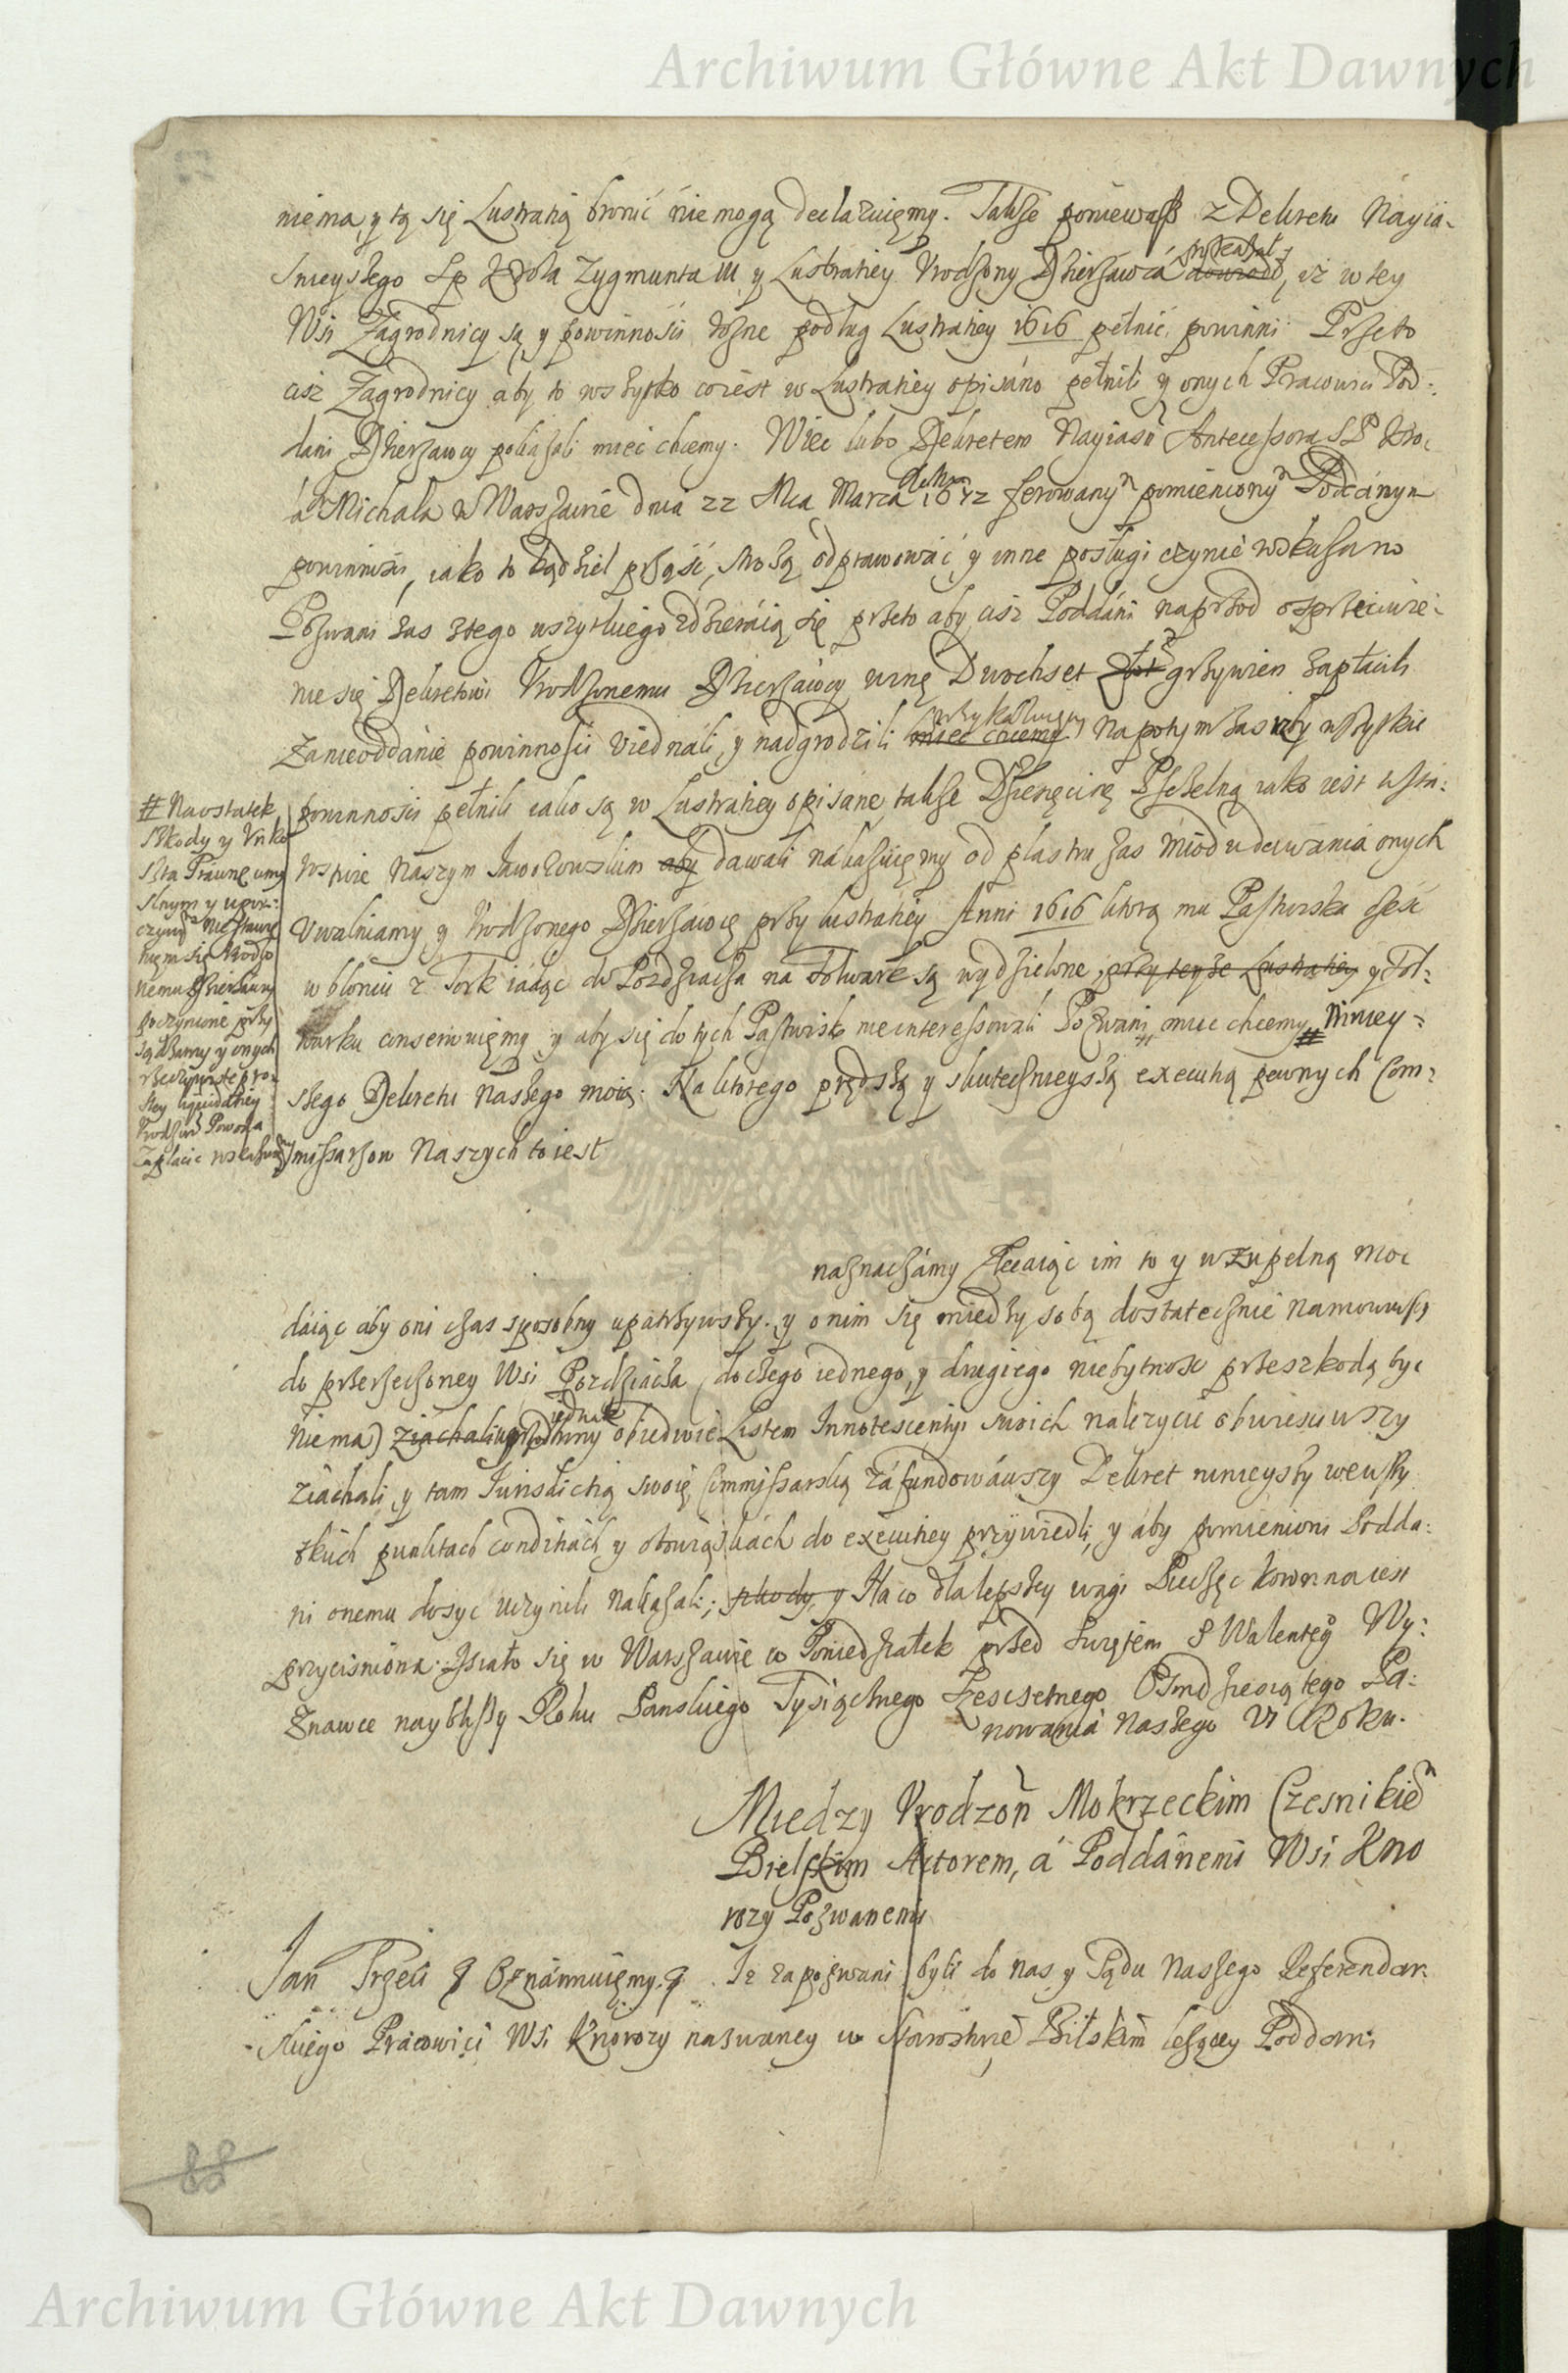 Archiwum Główne Akt Dawnych
nie ma, y tą się Lustratią bronić nie mogą declaruięmy. Także ponieważ z Dekretu Nayia-
snieyszego Krola Zygmunta III y Lustratiey Vrodzony Dzierżawca pokazał, iż w tey
Wsi Zagrodnicy są y powinnosci rożne podług Lustratiey 1616 pełnić powinni Przeto
ciż Zagrodnicy aby to wszytko co iest w Lustratiey opisáno pełnili y onych Pracowici Pod-
dani Dzierzawcy pokazali mieć chcemy. Wiec lubo Dekretem Nayiasn Antecessora SP Kro-
la Michała w Warszawie dnia 22 Mca Marca 1672 ferowanym pomienionym Poddanym
powinnosci, iako to kądziel prząść, strożą odprawować, y inne posługi czynić wskazano
Pozwani zas z tego wszytkiego zdzieraią się przeto aby ciż Poddáni naprzod o sprzeciwie-
nie się Dekretowi Vrodzonemu Dzierzawcy winę Dwochset grzywien zapłacili
Za nieoddánie powinnosci viednáli, y nádgrodzili przykazuięmy Na potym zas aby wszytkie
powinnosci pełnili iako są w Lustratiey opisane, także Dziesięcinę Pszczelną iako iest w Sta-
rostwie Naszym Jaworowskim aby dawali nakazuięmy od plastru zas miodu dawánia onych
Vwalniamy, y Vrodzonego Dzierzáwcę przy lustratiey Anni 1616 ktorą mu Pastwiska sześć
w błoniu z Tork iádąc do Pozdziacza na Folwark są wydzielone przy teyże Lustratiey y Fol-
warku conserwuięmy y aby się do tych Pastwisk nie interessowali Pozwani, mieć chcemy # Niniey-
szego Dekretu Naszego mocą. Na ktorego prędszą y skutecznieyszą executią pewnych Com-
missarzow Naszych to iest
# Naostatek
Szkody y
Prawne
czynione przy
sądzamy y onych
liquidatiey
Powoda
Zapłacić
naznaczámy Zlecaiąc im to y w zupełną moc
dáiąc aby oni czas sposobny upatrzywszy y o nim się miedzy sobą dostatecznie namowiwszy
do przerzeczoney Wsi Pozdziacza (do czego iednego, y drugiego niebytnosc przeszkodą byc
nie ma) ziachali iednak obiedwie Listem Innotescentyi swoich należycie obwiesciwszy
ziáchali, y tam Jurisdictią swoię Commissarską záfundowáwszy Dekret ninieyszy we wszy-
stkich punktach conditiách y obowiąskách do executiey przywiedli, y áby pomienioni Podda-
ni onemu dosyc uczynili nakazali; szkody y Na co dla lepszey wagi Pieczęc Koronna iest
przycisniona. Dziáło się w Warszawie w Poniedziałek przed Swiętem S Walentego Wy-
znawce naybliższy Roku Panskiego Tysiącznego Szescsetnego Osmdziesiątego Pa-
nowania Naszego VI Roku.
Miedzy Vrodzon Mokrzeckim Czesnikiem
Bielskim Aktorem, á Poddánemi Wsi Kno
rozy Pozwanemi
Jan Trzeci & Oznáimuięmy & Iż zapozwani byli do nas y Sądu Naszego Referendar-
skiego Prácowici Wsi Knorozy nazwaney w Starostwie Bilskim leżącey Poddani
88
Archiwum Główne Akt Dawnych